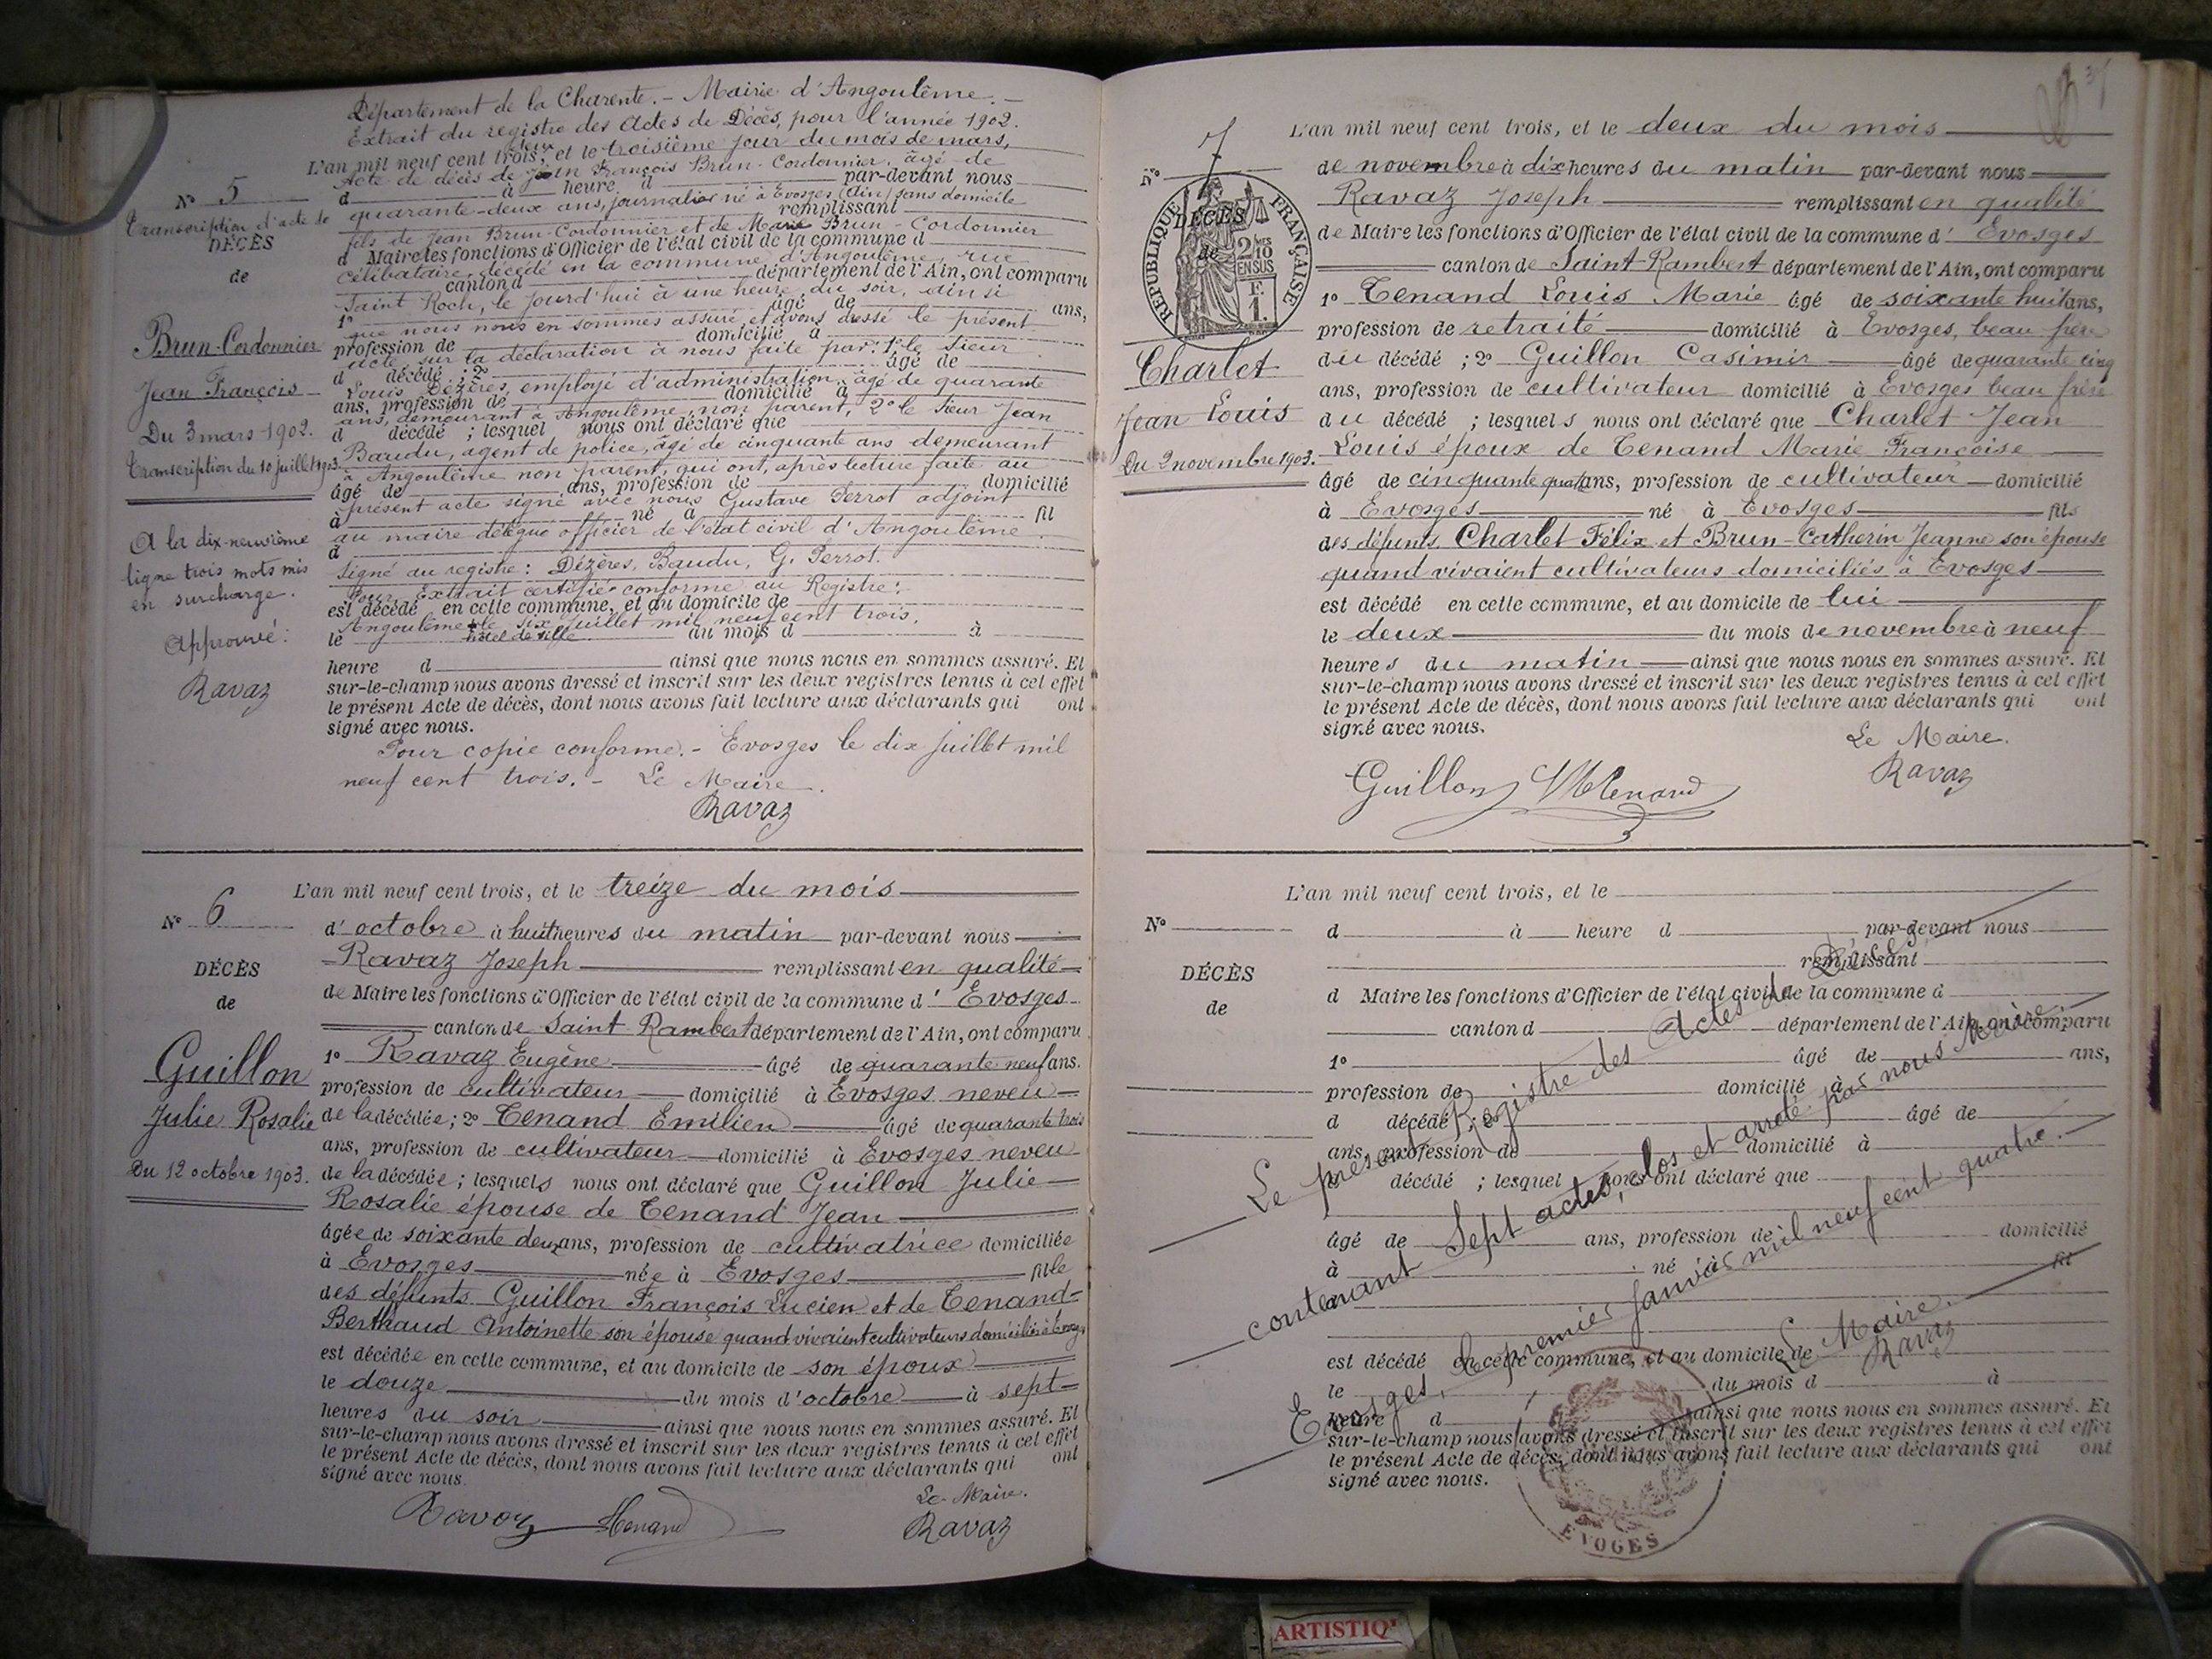 Département de la Charente. - Mairie d'Angoulême. -
Extrait du registre des Actes de Décès, pour l'année 1902.
L'an mil neuf cent trois, et le troisième jour du mois de mars,
deux
Acte de décès de Jean François Brun-Cordonnier, âgé de
d à heure d par-devant nous
quarante-deux ans, journalier né à Evosges (Ain) sans domicile
remplissant
fils de Jean Brun-Cordonnier et de Marie Brun-Cordonnier
d Maire les fonctions d'Officier de l'état civil de la commune d
célibataire, décédé en la commune d'Angoulême, rue
canton d département de l'Ain, ont comparu
Saint Roch, le jourd'hui à une heure du soir, ainsi
1° âgé de ans,
que nous nous en sommes assuré et avons dressé le présent
profession de domicilié à
acte sur la déclaration à nous faite par: 1° le sieur
d décédé ; 2° âgé de
Louis Dézères, employé d'administration, âgé de quarante
ans, profession de domicilié à
ans, demeurant à Angoulême, non parent, 2° le sieur Jean
d décédé ; lesquel nous ont déclaré que
Baudu, agent de police, âgé de cinquante ans demeurant
à Angoulême non parent, qui ont, après lecture faite du
âgé de ans, profession de domicilié
présent acte signé avec nous Gustave Perrot adjoint
à né à fil
au maire délégué officier de l'état civil d'Angoulême.
d
Signé au registre: Dézères, Baudu, G. Perrot.
Pour extrait certifié conforme au Registre:
est décédé en cette commune, et au domicile de
Angoulême le six juillet mil neuf cent trois.
hôtel de ville
le du mois d à
heure d ainsi que nous nous en sommes assuré. Et
sur-le-champ nous avons dressé et inscrit sur les deux registres tenus à cet effet
le présent Acte de décès, dont nous avons fait lecture aux déclarants qui ont
signé avec nous.
Pour copie conforme. - Evosges le dix juillet mil
neuf cent trois. - Le Maire.
Ravaz
N° 5
Transcription d'acte de
DÉCÈS
de
Brun-Cordonnier
Jean François
Du 3 mars 1902.
Transcription du 10 juillet 1903.
A la dix-neuvième
ligne trois mots mis
en surcharge.
Approuvé:
Ravaz
N° 6
DÉCÈS
de
Guillon
Julie Rosalie
Du 12 octobre 1903.
L'an mil neuf cent trois, et le treize du mois
d'octobre à huit heures du matin par-devant nous
Ravaz Joseph remplissant en qualité
de Maire les fonctions d'Officier de l'état civil de la commune d'Evosges
canton de Saint Rambert département de l'Ain, ont comparu
1° Ravaz Eugène âgé de quarante neuf ans.
profession de cultivateur domicilié à Evosges neveu
de la décédée ; 2° Tenand Emilien âgé de quarante trois
ans, profession de cultivateur domicilié à Evosges neveu
de la décédée ; lesquels nous ont déclaré que Guillon Julie
Rosalie épouse de Tenand Jean
âgée de soixante deux ans, profession de cultivatrice domiciliée
à Evosges née à Evosges fille
des défunts Guillon François Lucien et de Tenand-
Berthaud Antoinette son épouse quand vivaient cultivateurs domiciliés à Evosges
est décédée en cette commune, et au domicile de son époux
le douze du mois d'octobre à sept
heures du soir ainsi que nous nous en sommes assuré. Et
sur-le-champ nous avons dressé et inscrit sur les deux registres tenus à cet effet
le présent Acte de décès, dont nous avons fait lecture aux déclarants qui ont
signé avec nous.
Le Maire.
Ravaz Tenand Ravaz
N° 7
RÉPUBLIQUE FRANÇAISE
2/10 MES
EN SUS
F.
1.
DÉCÈS
de
Charlet
Jean Louis
Du 2 novembre 1903.
L'an mil neuf cent trois, et le deux du mois
de novembre à dix heures du matin par-devant nous
Ravaz Joseph remplissant en qualité
de Maire les fonctions d'Officier de l'état civil de la commune d'Evosges
canton de Saint-Rambert département de l'Ain, ont comparu
1° Tenand Louis Marie âgé de soixante huit ans,
profession de retraité domicilié à Evosges, beau frère
du décédé ; 2° Guillon Casimir âgé de quarante cinq
ans, profession de cultivateur domicilié à Evosges beau frère
du décédé ; lesquels nous ont déclaré que Charlet Jean
Louis époux de Tenand Marie Françoise
âgé de cinquante quatre ans, profession de cultivateur domicilié
à Evosges né à Evosges fils
des défunts Charlet Félix et Brun-Catherin Jeanne son épouse
quand vivaient cultivateurs domiciliés à Evosges
est décédé en cette commune, et au domicile de lui
le deux du mois de novembre à neuf
heures du matin ainsi que nous nous en sommes assuré. Et
sur-le-champ nous avons dressé et inscrit sur les deux registres tenus à cet effet
le présent Acte de décès, dont nous avons fait lecture aux déclarants qui ont
signé avec nous.
Le Maire.
Guillon Tenand Ravaz
N°
DÉCÈS
de
L'an mil neuf cent trois, et le
d à heure d par-devant nous
remplissant
d Maire les fonctions d'Officier de l'état civil de la commune d
canton d département de l'Ain, ont comparu
1° âgé de ans,
profession de domicilié à
d décédé ; 2° âgé de
ans, profession de domicilié à
d décédé ; lesquel nous ont déclaré que
âgé de ans, profession de domicilié
à né à fil
d
est décédé en cette commune, et au domicile de
le du mois d à
heure d ainsi que nous nous en sommes assuré. Et
sur-le-champ nous avons dressé et inscrit sur les deux registres tenus à cet effet
le présent Acte de décès, dont nous avons fait lecture aux déclarants qui ont
signé avec nous.
Le présent Registre des Actes de Décès,
contenant Sept actes, clos et arrêté par nous Maire.
Evosges, le premier Janvier mil neuf cent quatre.
Le Maire.
Ravaz
EVOGES
ARTISTIQ